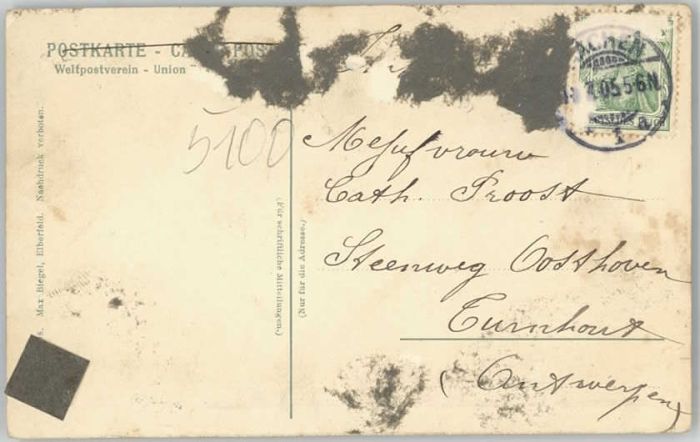 POSTKARTE - CA POS
Weltpostverein - Union
ACHEN
4.05.5-6N.
1
5100
Mejufvrouw
Cath. Proost
Steenweg Oosthoven
Turnhout
(Antwerpen)
(Für schriftliche Mitteilungen.)
(Nur für die Adresse.)
Max Biegel, Elberfeld. Nachdruck verboten.